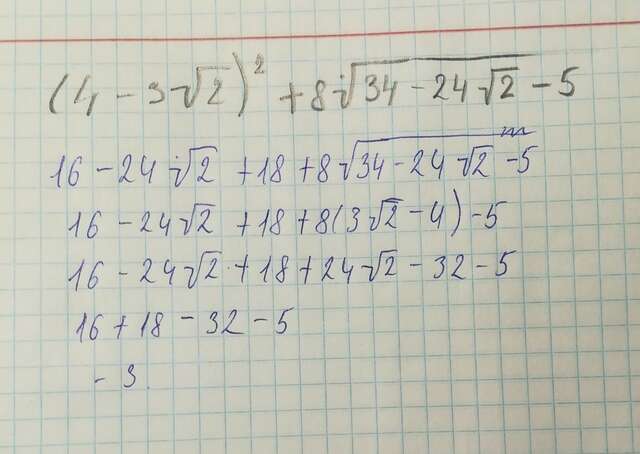 (4 - 3√2)² + 8√(34 - 24√2) - 5
16 - 24√2 + 18 + 8√(34 - 24√2) - 5
16 - 24√2 + 18 + 8(3√2 - 4) - 5
16 - 24√2 + 18 + 24√2 - 32 - 5
16 + 18 - 32 - 5
- 3